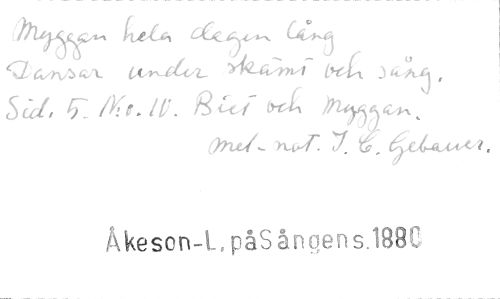 Myggan hela dagen lång
Dansar under skämt och sång.
Sid. 5. N:o. IV. Biet och Myggan.
mel-not. J. C. Gebauer.
Åkeson-L, påSångens.1880